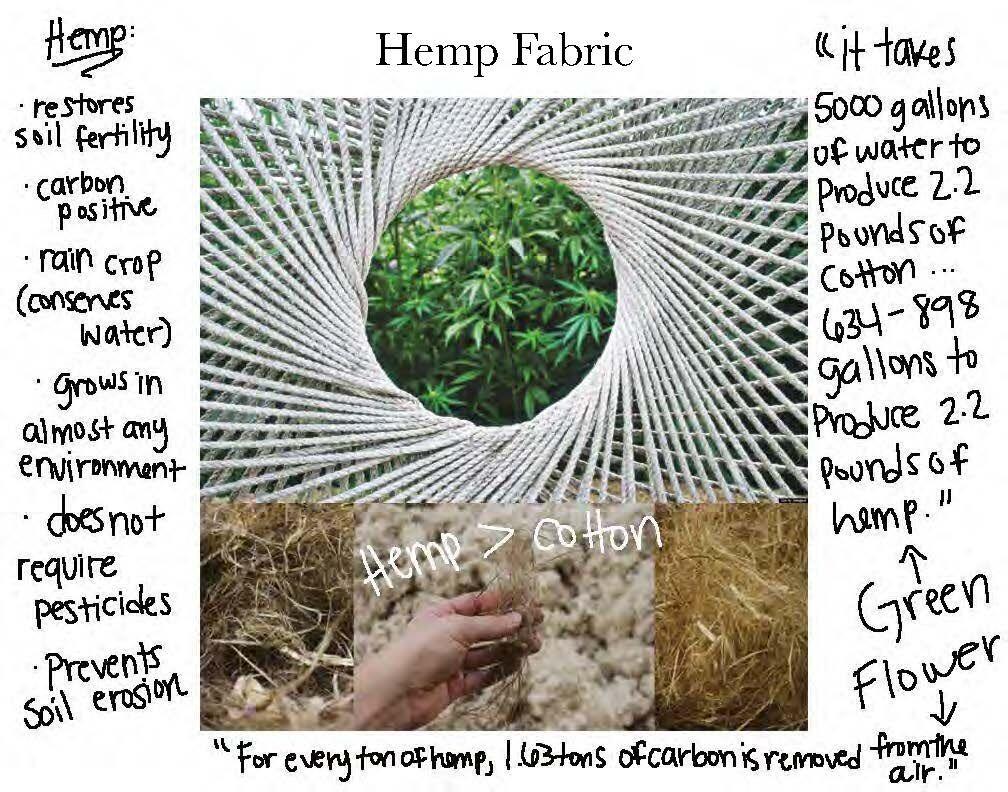 Hemp:
· restores
soil fertility
· carbon
positive
· rain crop
(conserves
water)
· grows in
almost any
environment
· does not
require
pesticides
· Prevents
Soil erosion
Hemp Fabric
Hemp > cotton
"it takes
5000 gallons
of water to
Produce 2.2
Pounds of
Cotton ...
634-898
gallons to
Produce 2.2
pounds of
hemp."
↑
Green
Flower
↓
"For every ton of hemp, 1.63 tons of carbon is removed from the
air."